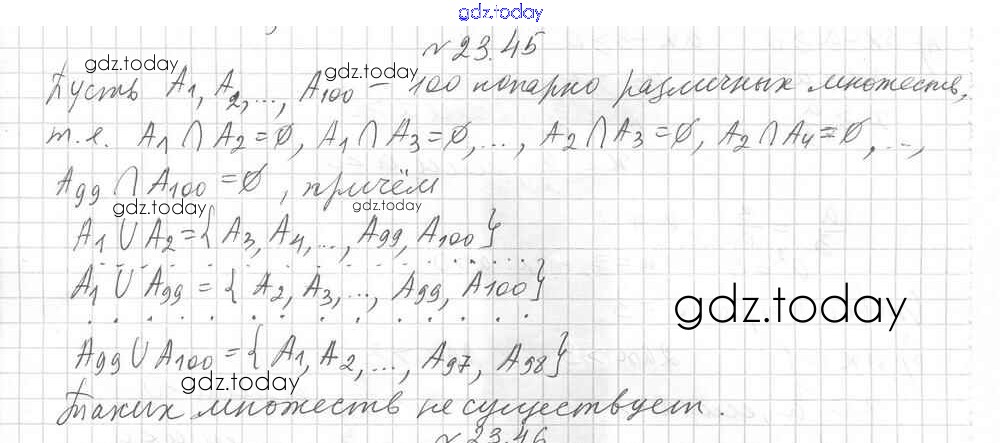 gdz.today
№ 23.45
gdz.today gdz.today
Пусть A₁, A₂, ..., A₁₀₀ – 100 попарно различных множеств,
т.е. A₁ ∩ A₂ = ∅, A₁ ∩ A₃ = ∅, ..., A₂ ∩ A₃ = ∅, A₂ ∩ A₄ = ∅, ...,
A₉₉ ∩ A₁₀₀ = ∅, причём
gdz.today gdz.today
A₁ ∪ A₂ = { A₃, A₄, ..., A₉₉, A₁₀₀ }
. . . . . . . . . . . . . . .
A₁ ∪ A₉₉ = { A₂, A₃, ..., A₉₉, A₁₀₀ }
gdz.today
. . . . . . . . . . . . . . .
A₉₉ ∪ A₁₀₀ = { A₁, A₂, ..., A₉₇, A₉₈ }
gdz.today
Таких множеств не существует.
№ 23.46